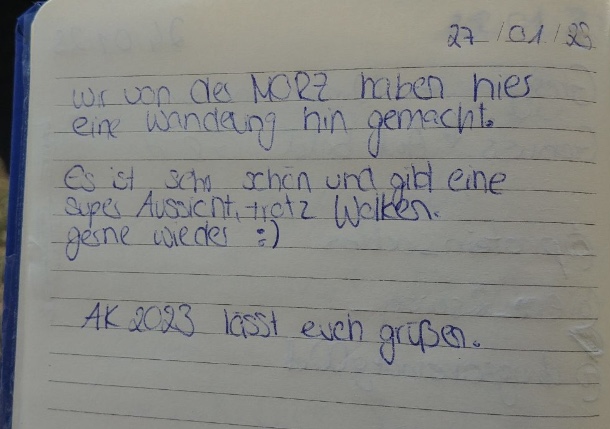 27/01/23
Wir von der MORZ haben hier
eine Wanderung hin gemacht.
Es ist sehr schön und gibt eine
super Aussicht, trotz Wolken.
gerne wieder :)
AK 2023 lässt euch grüßen.